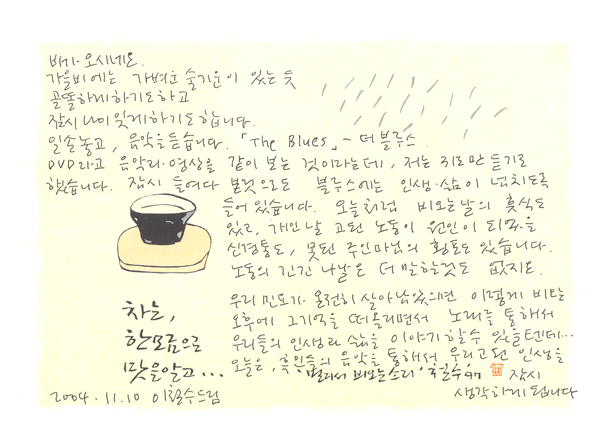 비가 오시네요.
가을비에는 가벼운 술기운이 있는 듯
골똘하게하기도하고
잠시 나이 잊게하기도합니다.
일손놓고, 음악을듣습니다. 「The Blues」- 더 블루스
DVD라고 음악과 영상을 같이 보는 것이라는데, 저는 귀로만 듣기로
했습니다. 잠시 들여다 본것으로도 블루스에는 인생·삶이 넘치도록
들어 있습니다. 오늘처럼 비오는날의 휴식도
있고, 개인날 고된 노동이 원인이 되었을
신경통도, 못된 주인마님의 횡포도 있습니다.
노동의 긴긴 나날은 더 말할것도 없지요.
우리 민요가 온전히 살아남았으면 이렇게 비오는
오후에 그기억을 떠올리면서 노래를 통해서
우리들의 인생과 삶을 이야기할수 있을텐데...
오늘은, 흑인들의 음악을 통해서 우리고된 인생을
잠시
생각하게 됩니다
멀리서 비오는소리
차는,
한모금으로
맛을알고...
2004.11.10 이철수드림